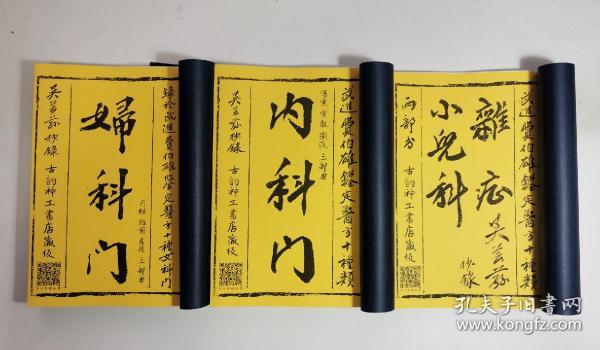 錄於武進費伯雄鑒定醫方十種女科門
婦科门
月經 胎前 產後 三部分
吳芸荪 抄録 古韵神工書店藏板
武進費伯雄鑑定醫方十種類
三部方
内科门
吳芸荪 抄録 古韵神工書店藏板
武進費伯雄鑑定醫方十種類
雜症
吳芸荪
抄録
小兒科
两部方 古韵神工書店藏板
孔夫子旧書网
www.kongfz.com